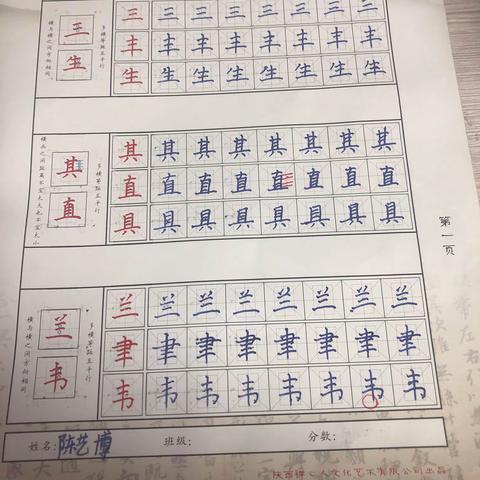 横与横之间方向相同
三
生
多横等距且平行
三三三三三三三三
丰丰丰丰丰丰丰丰
生生生生生生生生
横画之间距离不宜太大也不宜太小
其
直
多横等距且平行
其其其其其其其其
直直直直直直直直
具具具具具具具具
横与横之间方向相同
兰
韦
多横等距且平行
兰兰兰兰兰兰兰兰
聿聿聿聿聿聿聿聿
韦韦韦韦韦韦韦韦
第一页
姓名:陈艺博 班级: 分数:
人文化艺术有限公司出品